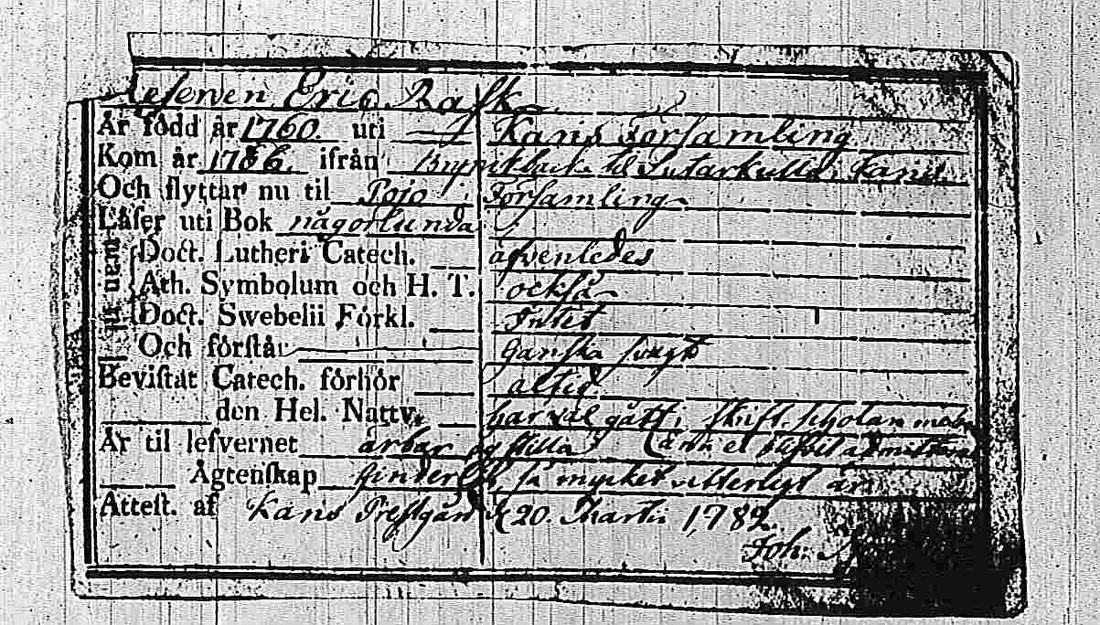 Reserven Eric Rask
Är född år 1760. uti Karis Församling
Kom år 1786. ifrån til Sutarkulla, Karis
Och flyttar nu til Pojo Församling
Läser uti Bok någorlunda
utan til
Doct. Lutheri Catech. äfvenledes
Ath. Symbolum och H. T. också
Doct. Swebelii Förkl. Intet
Och förstår Ganska svagt
Bevistat Catech. förhör altid
den Hel. Nattv. har väl gått i skrift. scholan men
Är til lefvernet ärbar och stilla (än ei blifvit admitterad
Ägtenskap hinderlös, så mycket vitterligt är.
Attest. af Karis Prestgård d. 20. Martii 1789.
Joh.